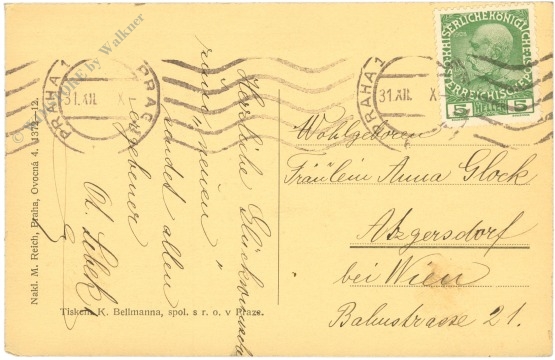 Herzliche Glückwünsche
zum neuen
sendet allen
ergebener
Wohlgeboren
Fräulein Anna Glock
Atzgersdorf
bei Wien
Bahnstrasse 21.
PRAHA 1
PRAG
31.XII. X
PRAHA 1
31.XII. X
KAISERLICHE KÖNIGLICHE
ÖSTERREICHISCHE POST
5 HELLER 5
by Walkner
Nakl. M. Reich, Praha, Ovocná 4.
Tiskem K. Bellmanna, spol. s r. o. v Praze.